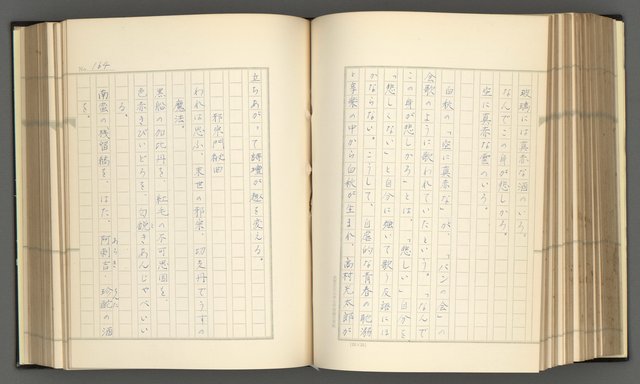 玻璃には真赤な酒のいろ。
なんでこの身が悲しかろ。
空に真赤な雲のいろ。
白秋の「空に真赤な」が、「パンの会」の
会歌のように歌われていたという。「なんで
この身が悲しかろ」とは、「悲しい」自分を、
「悲しくない」と自分に強いて歌う反語には
かならない。こうして、自虐的な青春の耽溺
と享楽の中から白秋が生まれ、高村光太郎が
No. 164
立ちあがって詩壇が趣を変える。
邪宗門秘曲
われは思ふ、末世の邪宗、切支丹でうすの
魔法。
黒船の加比丹を、紅毛の不可思議国を、
色赤きびいどろを、匂鋭きあんじゃべいい
る、
南蛮の桟留縞を、はた、阿剌吉、珍酡の酒
を。